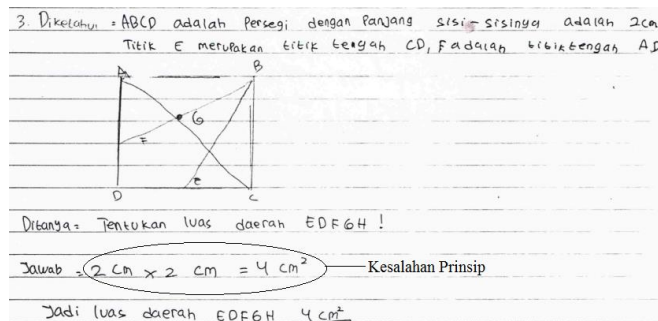 3. Diketahui = ABCD adalah Persegi dengan Panjang sisi-sisinya adalah 2cm
Titik E merupakan titik tengah CD, F adalah titik tengah AD
A B
G
F
E
D C
Ditanya = Tentukan luas daerah EDFGH !
Jawab = 2 cm × 2 cm = 4 cm² Kesalahan Prinsip
Jadi luas daerah EDFGH 4 cm²